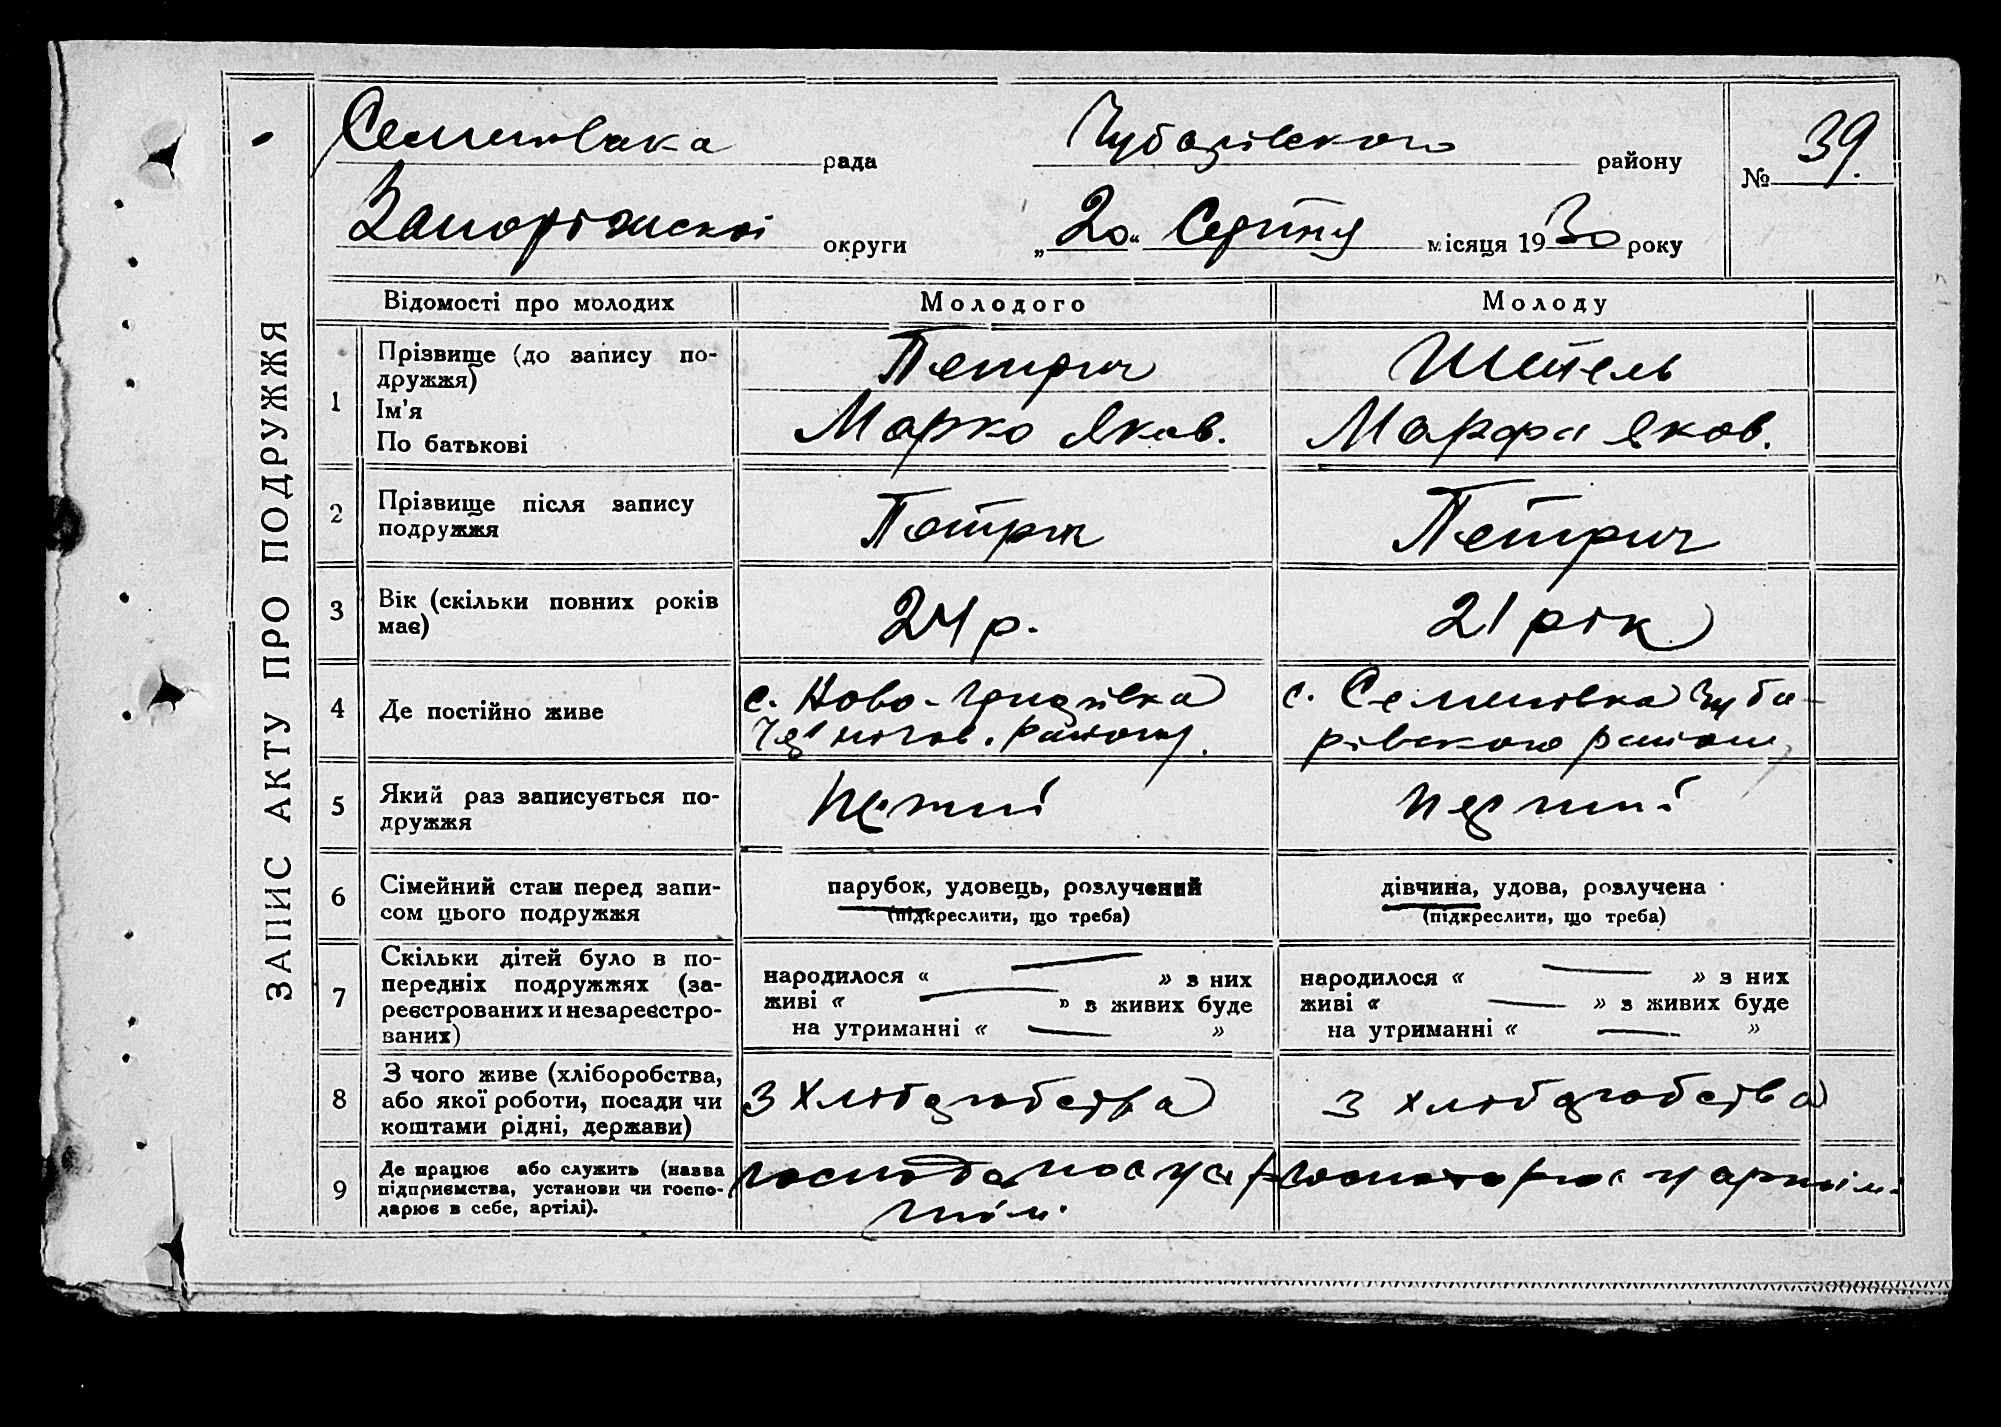 ЗАПИС АКТУ ПРО ПОДРУЖЖЯ
Семенівська рада Чубарівського району № 39.
Запоріжской округи „20“ Серпня місяця 1930 року
Відомості про молодих Молодого Молоду
1 Прізвище (до запису по-
дружжя) Петрич Штепель
Ім'я
По батькові Марко Яков. Марфа Яков.
2 Прізвище після запису
подружжя Петрич Петрич
3 Вік (скільки повних років
має) 24 р. 21 рік
4 Де постійно живе с. Ново- с. Семенівка Чуба-
району. рівского району
5 Який раз записується по-
дружжя перший перший
6 Сімейний стан перед запи-
сом цього подружжя
парубок, удовець, розлучений
(підкреслити, що треба)
дівчина, удова, розлучена
(підкреслити, що треба)
7 Скільки дітей було в по-
передніх подружжях (за-
реєстрованих и незареєстро-
ваних)
народилося « — » з них
живі « — » з живих буде
на утриманні « — »
народилося « — » з них
живі « — » з живих буде
на утриманні « — »
8 З чого живе (хліборобства,
або якої роботи, посади чи
коштами рідні, держави)
З хліборобства З хліборобства
9 Де працює або служить (назва
підприємства, установи чи госпо-
дарює в себе, артілі).
господарює у ар-
тілі. господарює у артілі.